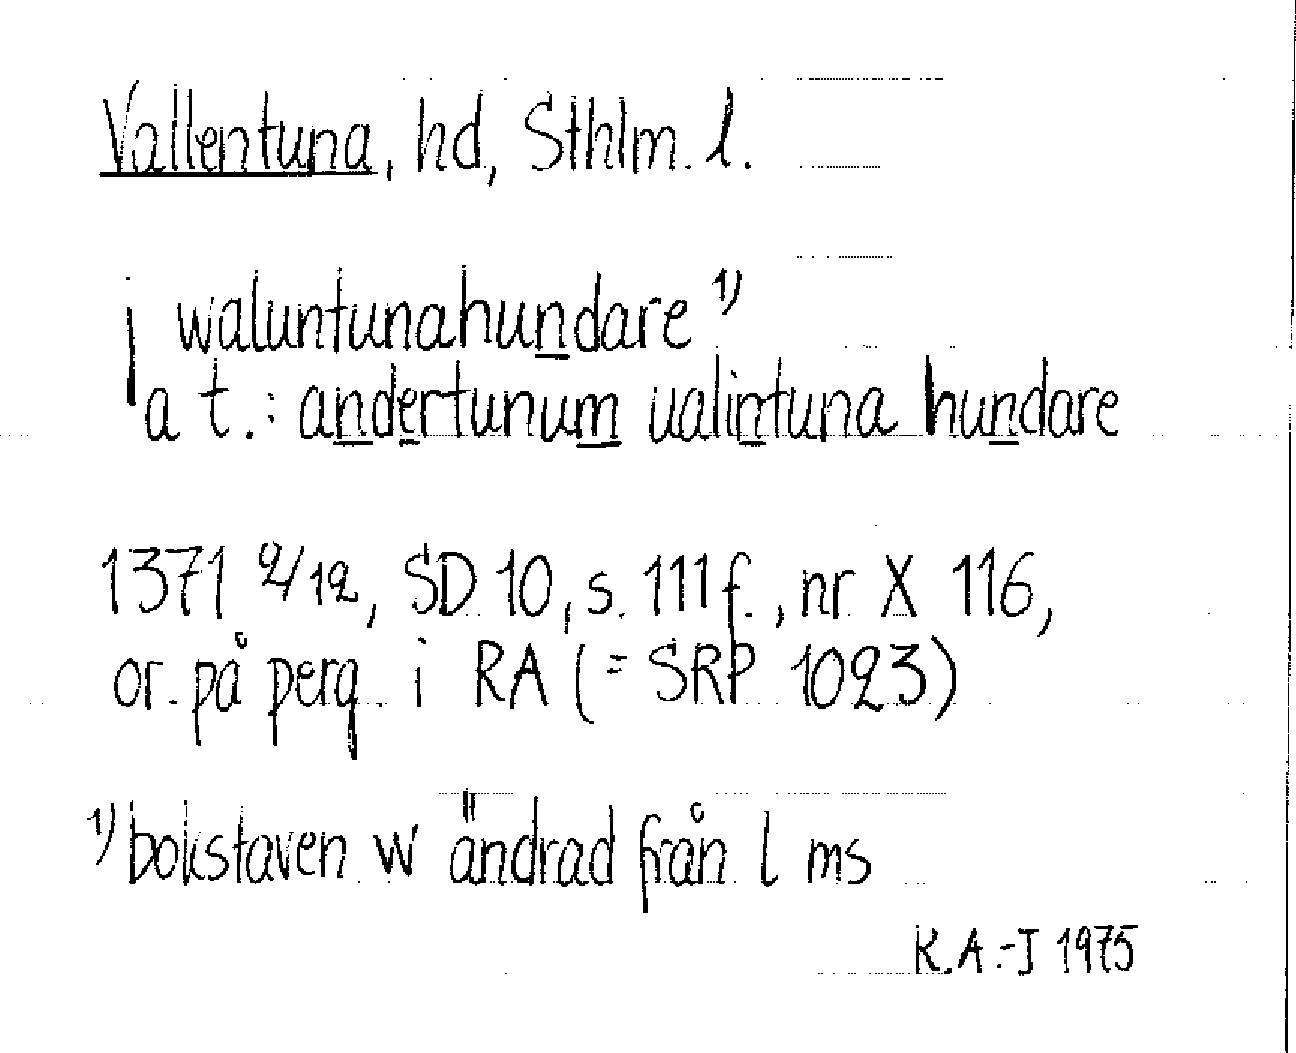 Vallentuna, hd, Sthlm. l.
j waluntunahundare 1)
a t.: andertunum ualintuna hundare
1371 2/12, SD 10, s. 111 f., nr X 116,
or. på perg. i RA (= SRP 1023)
1) bokstaven w ändrad från l ms
K.A.-J 1975